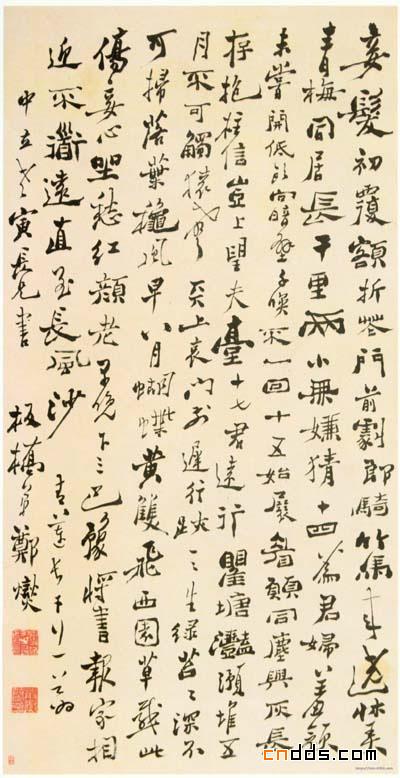 妾髮初覆額折花門前劇郎騎竹馬來遶床弄
青梅同居長干里兩小無嫌猜十四為君婦羞顏
未嘗開低頭向暗壁千喚不一回十五始展眉願同塵與灰長
存抱柱信豈上望夫臺十七君遠行瞿塘灩澦堆五
月不可觸猿聲天上哀門前遲行跡一一生綠苔苔深不
可掃落葉秋風早八月蝴蝶黃雙飛西園草感此
傷妾心坐愁紅顏老早晚下三巴豫將書報家相
迎不道遠直至長風沙 青蓮長干行一首為
中立老寅長兄書 板橋弟鄭燮
cndds.com